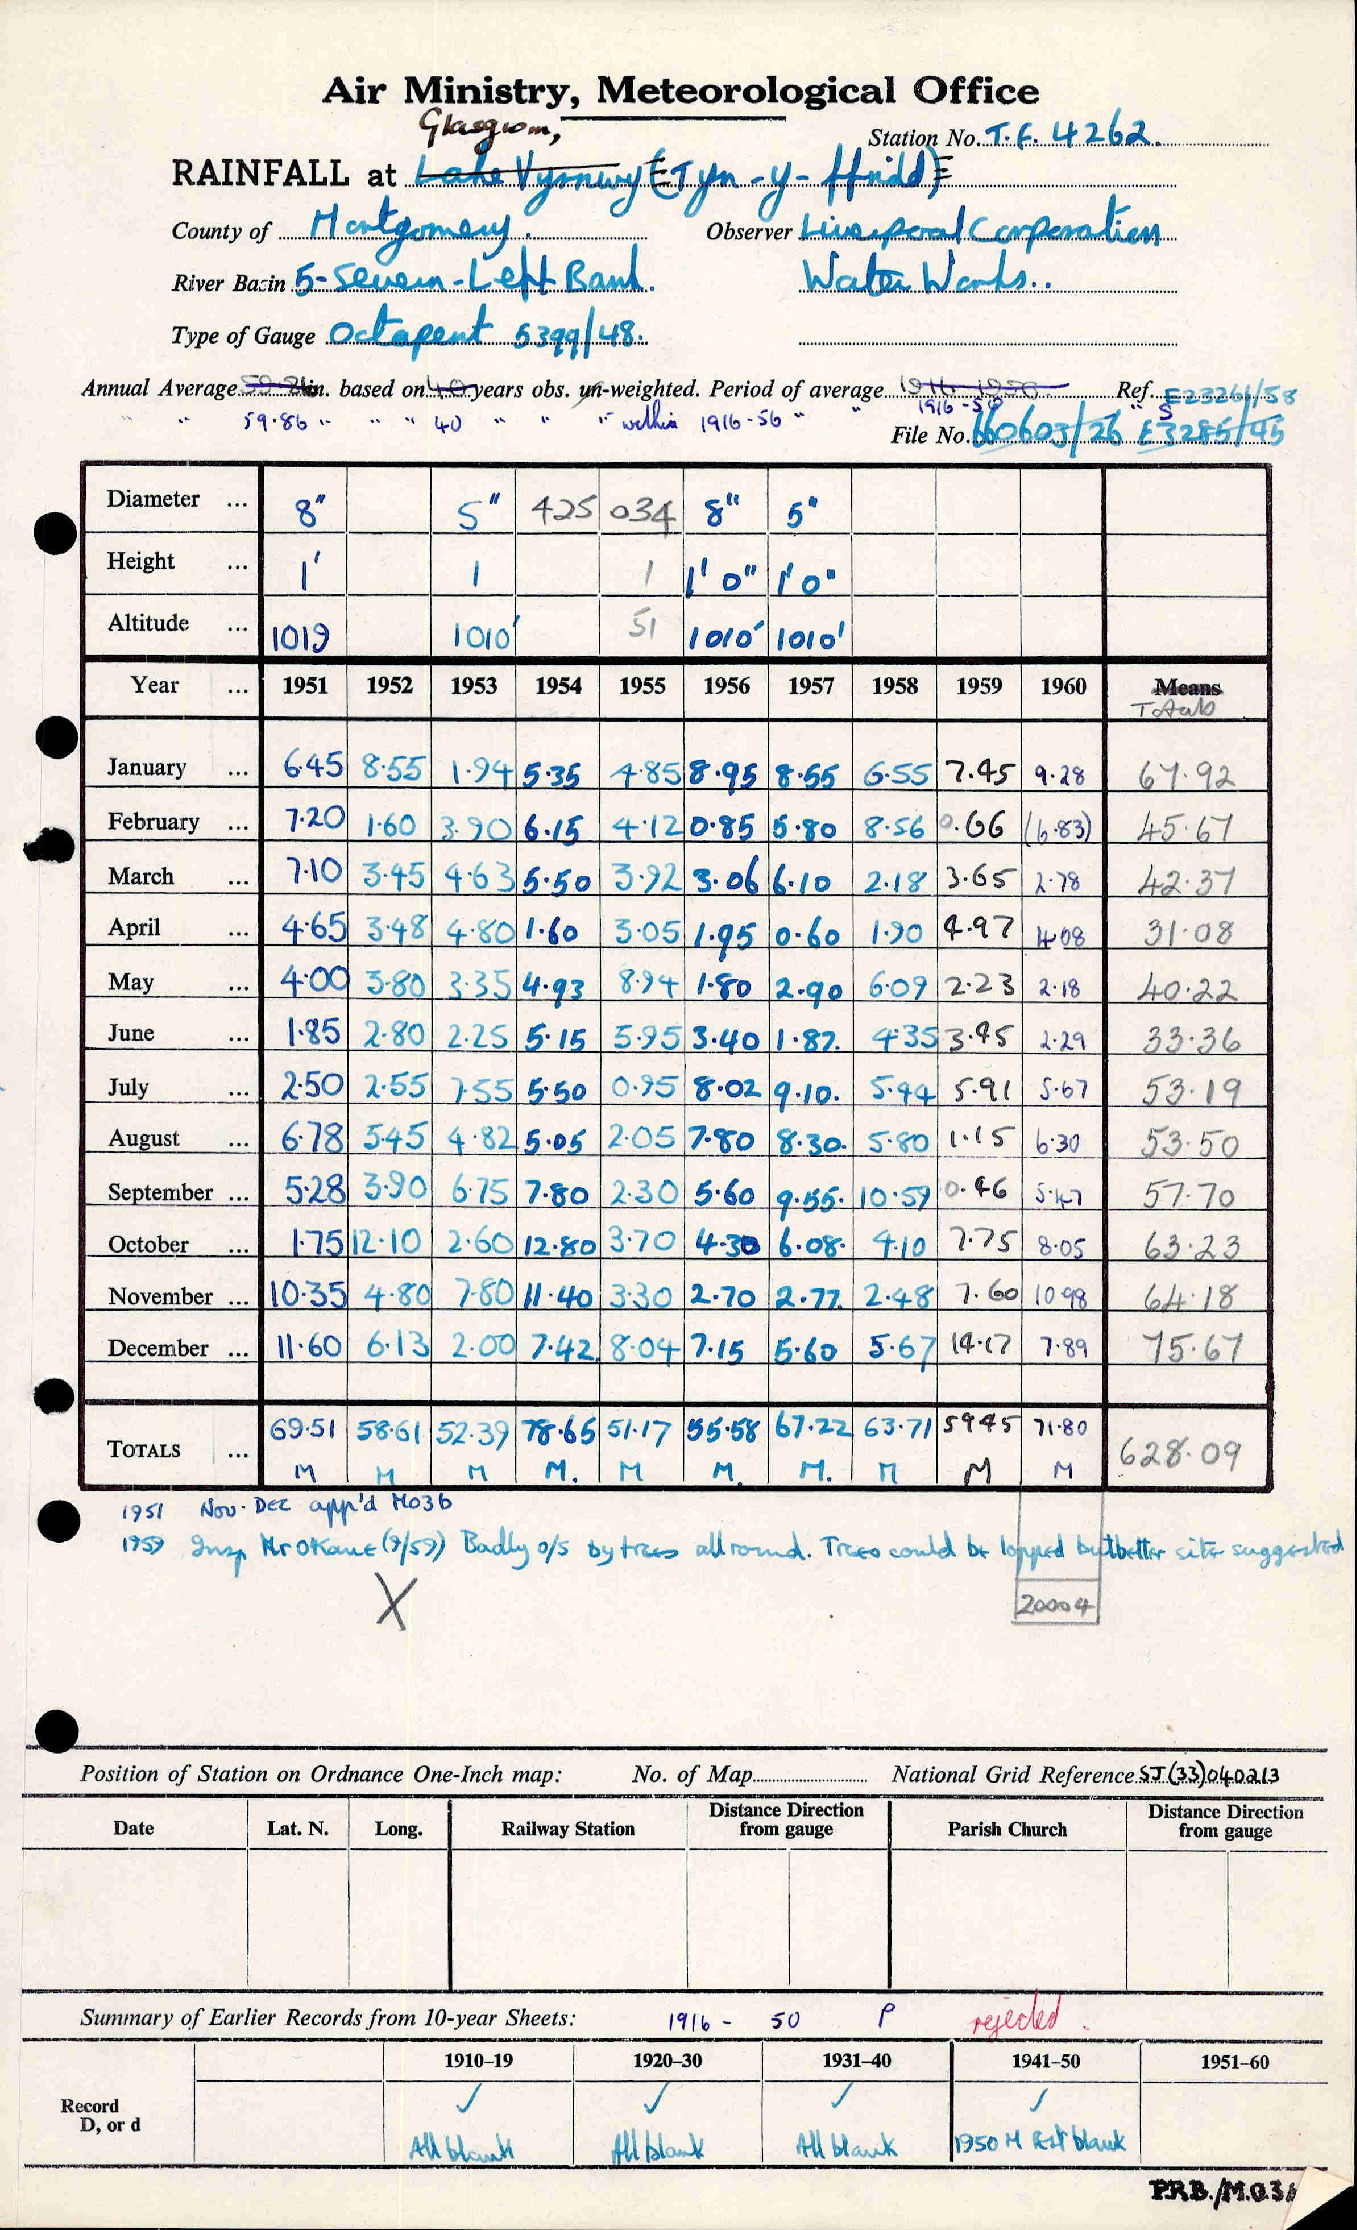 Air Ministry, Meteorological Office
Glasgwm,
Station No. T.F. 4262.
RAINFALL at Lake Vyrnwy (Tyn-y-ffridd)
County of Montgomery. Observer Liverpool Corporation
River Basin 5-Severn-Left Bank. Water Works..
Type of Gauge Octapent 5399/48.
Annual Average in. based on 40 years obs. un-weighted. Period of average 1916-1950 Ref. E23261/58
" " 59.86 " " " 40 " " " within 1916-56 " " 1916-50 " S
File No. 660603/26 E3285/45
Diameter ... 8" 5" 425 034 8" 5"
Height ... 1' 1 1 1' 0" 1' 0"
Altitude ... 1019 1010' 51 1010' 1010'
Year ... 1951 1952 1953 1954 1955 1956 1957 1958 1959 1960 Means
Totals
January ... 6.45 8.55 1.94 5.35 4.85 8.95 8.55 6.55 7.45 9.28 67.92
February ... 7.20 1.60 3.90 6.15 4.12 0.85 5.80 8.56 0.66 (6.83) 45.67
March ... 7.10 3.45 4.63 5.50 3.92 3.06 6.10 2.18 3.65 2.78 42.37
April ... 4.65 3.48 4.80 1.60 3.05 1.95 0.60 1.90 4.97 4.08 31.08
May ... 4.00 3.80 3.35 4.93 8.94 1.80 2.90 6.09 2.23 2.18 40.22
June ... 1.85 2.80 2.25 5.15 5.95 3.40 1.87. 4.35 3.45 2.29 33.36
July ... 2.50 2.55 7.55 5.50 0.95 8.02 9.10. 5.44 5.91 5.67 53.19
August ... 6.78 5.45 4.82 5.05 2.05 7.80 8.30. 5.80 1.15 6.30 53.50
September ... 5.28 3.90 6.75 7.80 2.30 5.60 9.55. 10.59 0.46 5.47 57.70
October ... 1.75 12.10 2.60 12.80 3.70 4.30 6.08. 4.10 7.75 8.05 63.23
November ... 10.35 4.80 7.80 11.40 3.30 2.70 2.77. 2.48 7.60 10.98 64.18
December ... 11.60 6.13 2.00 7.42 8.04 7.15 5.60 5.67 14.17 7.89 75.67
TOTALS ... 69.51 58.61 52.39 78.65 51.17 55.58 67.22 63.71 59.45 71.80 628.09
M M M M. M M. M. M M M
1951 Nov-Dec app'd M03b
1959 Insp Mr OKane (9/59) Badly o/s by trees all round. Trees could be lopped but better site suggested
X
20004
Position of Station on Ordnance One-Inch map: No. of Map National Grid Reference SJ(33)040213
Date Lat. N. Long. Railway Station Distance Direction from gauge Parish Church Distance Direction from gauge
Summary of Earlier Records from 10-year Sheets: 1916 - 50 P rejected.
1910–19 1920–30 1931–40 1941–50 1951–60
Record
D, or d
✓ ✓ ✓ ✓
All blank All blank All blank 1950 M Rest blank
P.R.B./M.O.3